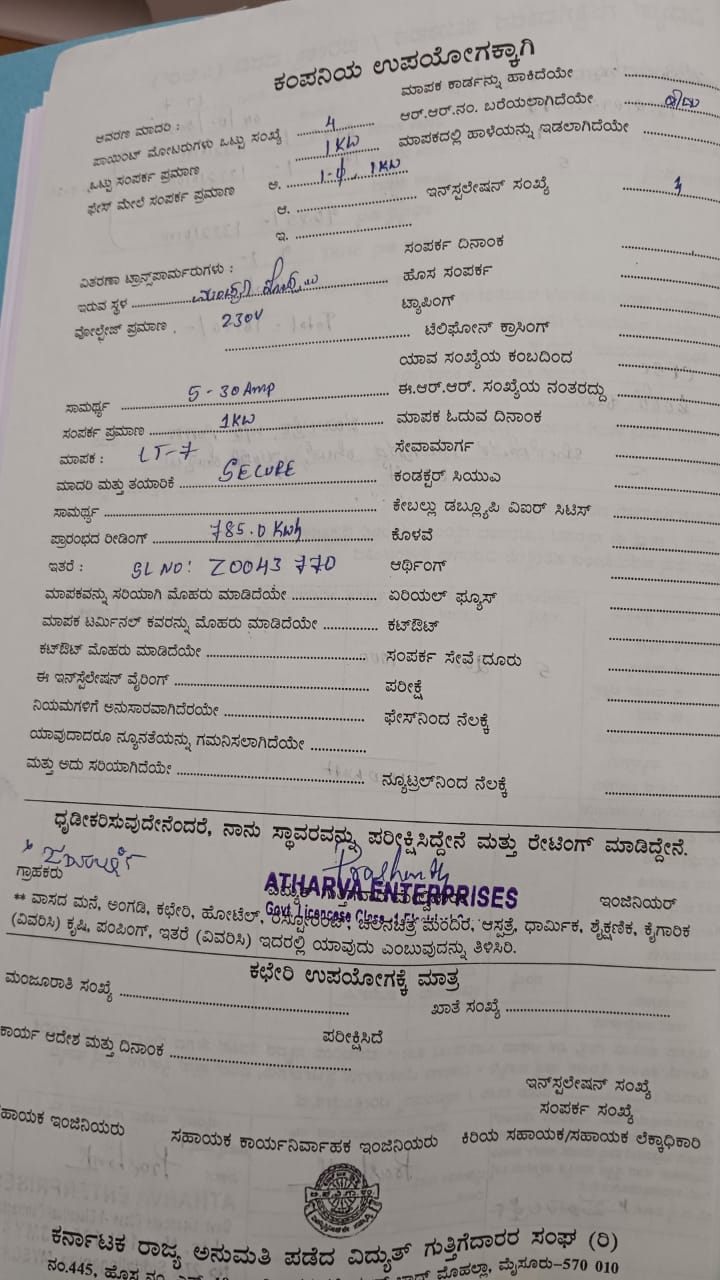 ಕಂಪನಿಯ ಉಪಯೋಗಕ್ಕಾಗಿ
ಆವರಣ ಮಾದರಿ :
ಮಾಪಕ ಕಾರ್ಡನ್ನು ಹಾಕಿದೆಯೇ
ಪಾಯಿಂಟ್ ಮೋಟರುಗಳು ಒಟ್ಟು ಸಂಖ್ಯೆ 4 ಆರ್.ಆರ್.ನಂ. ಬರೆಯಲಾಗಿದೆಯೇ
ಒಟ್ಟು ಸಂಪರ್ಕ ಪ್ರಮಾಣ 1KW ಮಾಪಕದಲ್ಲಿ ಹಾಳೆಯನ್ನು ಇಡಲಾಗಿದೆಯೇ
ಫೇಸ್ ಮೇಲೆ ಸಂಪರ್ಕ ಪ್ರಮಾಣ ಅ. 1-φ, 1KW
ಆ. ಇನ್‌ಸ್ಟಲೇಷನ್ ಸಂಖ್ಯೆ
ಇ.
ಸಂಪರ್ಕ ದಿನಾಂಕ
ವಿತರಣಾ ಟ್ರಾನ್ಸ್‌ಪಾರ್ಮರುಗಳು :
ಹೊಸ ಸಂಪರ್ಕ
ಇರುವ ಸ್ಥಳ
ಟ್ಯಾಪಿಂಗ್
ವೋಲ್ಟೇಜ್ ಪ್ರಮಾಣ . 230V
ಟೆಲಿಫೋನ್ ಕ್ರಾಸಿಂಗ್
ಯಾವ ಸಂಖ್ಯೆಯ ಕಂಬದಿಂದ
ಸಾಮರ್ಥ್ಯ 5-30 Amp ಈ.ಆರ್.ಆರ್. ಸಂಖ್ಯೆಯ ನಂತರದ್ದು
ಸಂಪರ್ಕ ಪ್ರಮಾಣ 1KW ಮಾಪಕ ಓದುವ ದಿನಾಂಕ
ಮಾಪಕ : LT-7 ಸೇವಾಮಾರ್ಗ
ಮಾದರಿ ಮತ್ತು ತಯಾರಿಕೆ SECURE ಕಂಡಕ್ಟರ್ ಸಿಯುಎ
ಸಾಮರ್ಥ್ಯ ಕೇಬಲ್ಲು ಡಬ್ಲ್ಯೂಪಿ ವಿಐರ್ ಸಿಟಿಸ್
ಪ್ರಾರಂಭದ ರೀಡಿಂಗ್ 785.0 Kwh ಕೊಳವೆ
ಇತರೆ : SL NO: Z0043 770 ಆರ್ಥಿಂಗ್
ಮಾಪಕವನ್ನು ಸರಿಯಾಗಿ ಮೊಹರು ಮಾಡಿದೆಯೇ ಏರಿಯಲ್ ಫ್ಯೂಸ್
ಮಾಪಕ ಟರ್ಮಿನಲ್ ಕವರನ್ನು ಮೊಹರು ಮಾಡಿದೆಯೇ ಕಟ್‌ಔಟ್
ಕಟ್‌ಔಟ್ ಮೊಹರು ಮಾಡಿದೆಯೇ ಸಂಪರ್ಕ ಸೇವೆ ದೂರು
ಈ ಇನ್‌ಸ್ಟೆಲೇಷನ್ ವೈರಿಂಗ್ ಪರೀಕ್ಷೆ
ನಿಯಮಗಳಿಗೆ ಅನುಸಾರವಾಗಿದೆರಯೇ ಫೇಸ್‌ನಿಂದ ನೆಲಕ್ಕೆ
ಯಾವುದಾದರೂ ನ್ಯೂನತೆಯನ್ನು ಗಮನಿಸಲಾಗಿದೆಯೇ
ಮತ್ತು ಅದು ಸರಿಯಾಗಿದೆಯೇ ನ್ಯೂಟ್ರಲ್‌ನಿಂದ ನೆಲಕ್ಕೆ
ಧೃಡೀಕರಿಸುವುದೇನೆಂದರೆ, ನಾನು ಸ್ಥಾವರವನ್ನು ಪರೀಕ್ಷಿಸಿದ್ದೇನೆ ಮತ್ತು ರೇಟಿಂಗ್ ಮಾಡಿದ್ದೇನೆ.
ಗ್ರಾಹಕರು ಇಂಜಿನಿಯರ್
ATHARVA ENTERPRISES
** ವಾಸದ ಮನೆ, ಅಂಗಡಿ, ಕಛೇರಿ, ಹೋಟೆಲ್, ರೆಸ್ಟೋರೆಂಟ್, ಚಲನಚಿತ್ರ ಮಂದಿರ, ಆಸ್ಪತ್ರೆ, ಧಾರ್ಮಿಕ, ಶೈಕ್ಷಣಿಕ, ಕೈಗಾರಿಕ
(ವಿವರಿಸಿ) ಕೃಷಿ, ಪಂಪಿಂಗ್, ಇತರೆ (ವಿವರಿಸಿ) ಇದರಲ್ಲಿ ಯಾವುದು ಎಂಬುವುದನ್ನು ತಿಳಿಸಿರಿ.
ಕಛೇರಿ ಉಪಯೋಗಕ್ಕೆ ಮಾತ್ರ
ಮಂಜೂರಾತಿ ಸಂಖ್ಯೆ ಖಾತೆ ಸಂಖ್ಯೆ
ಪರೀಕ್ಷಿಸಿದೆ
ಕಾರ್ಯ ಆದೇಶ ಮತ್ತು ದಿನಾಂಕ
ಇನ್‌ಸ್ಪಲೇಷನ್ ಸಂಖ್ಯೆ
ಸಂಪರ್ಕ ಸಂಖ್ಯೆ
ಹಾಯಕ ಇಂಜಿನಿಯರು ಸಹಾಯಕ ಕಾರ್ಯನಿರ್ವಾಹಕ ಇಂಜಿನಿಯರು ಕಿರಿಯ ಸಹಾಯಕ/ಸಹಾಯಕ ಲೆಕ್ಕಾಧಿಕಾರಿ
ಕರ್ನಾಟಕ ರಾಜ್ಯ ಅನುಮತಿ ಪಡೆದ ವಿದ್ಯುತ್ ಗುತ್ತಿಗೆದಾರರ ಸಂಘ (ರಿ)
ನಂ.445, ಹೊಸ ನಂ. ಮೊಹಲ್ಲಾ, ಮೈಸೂರು-570 010